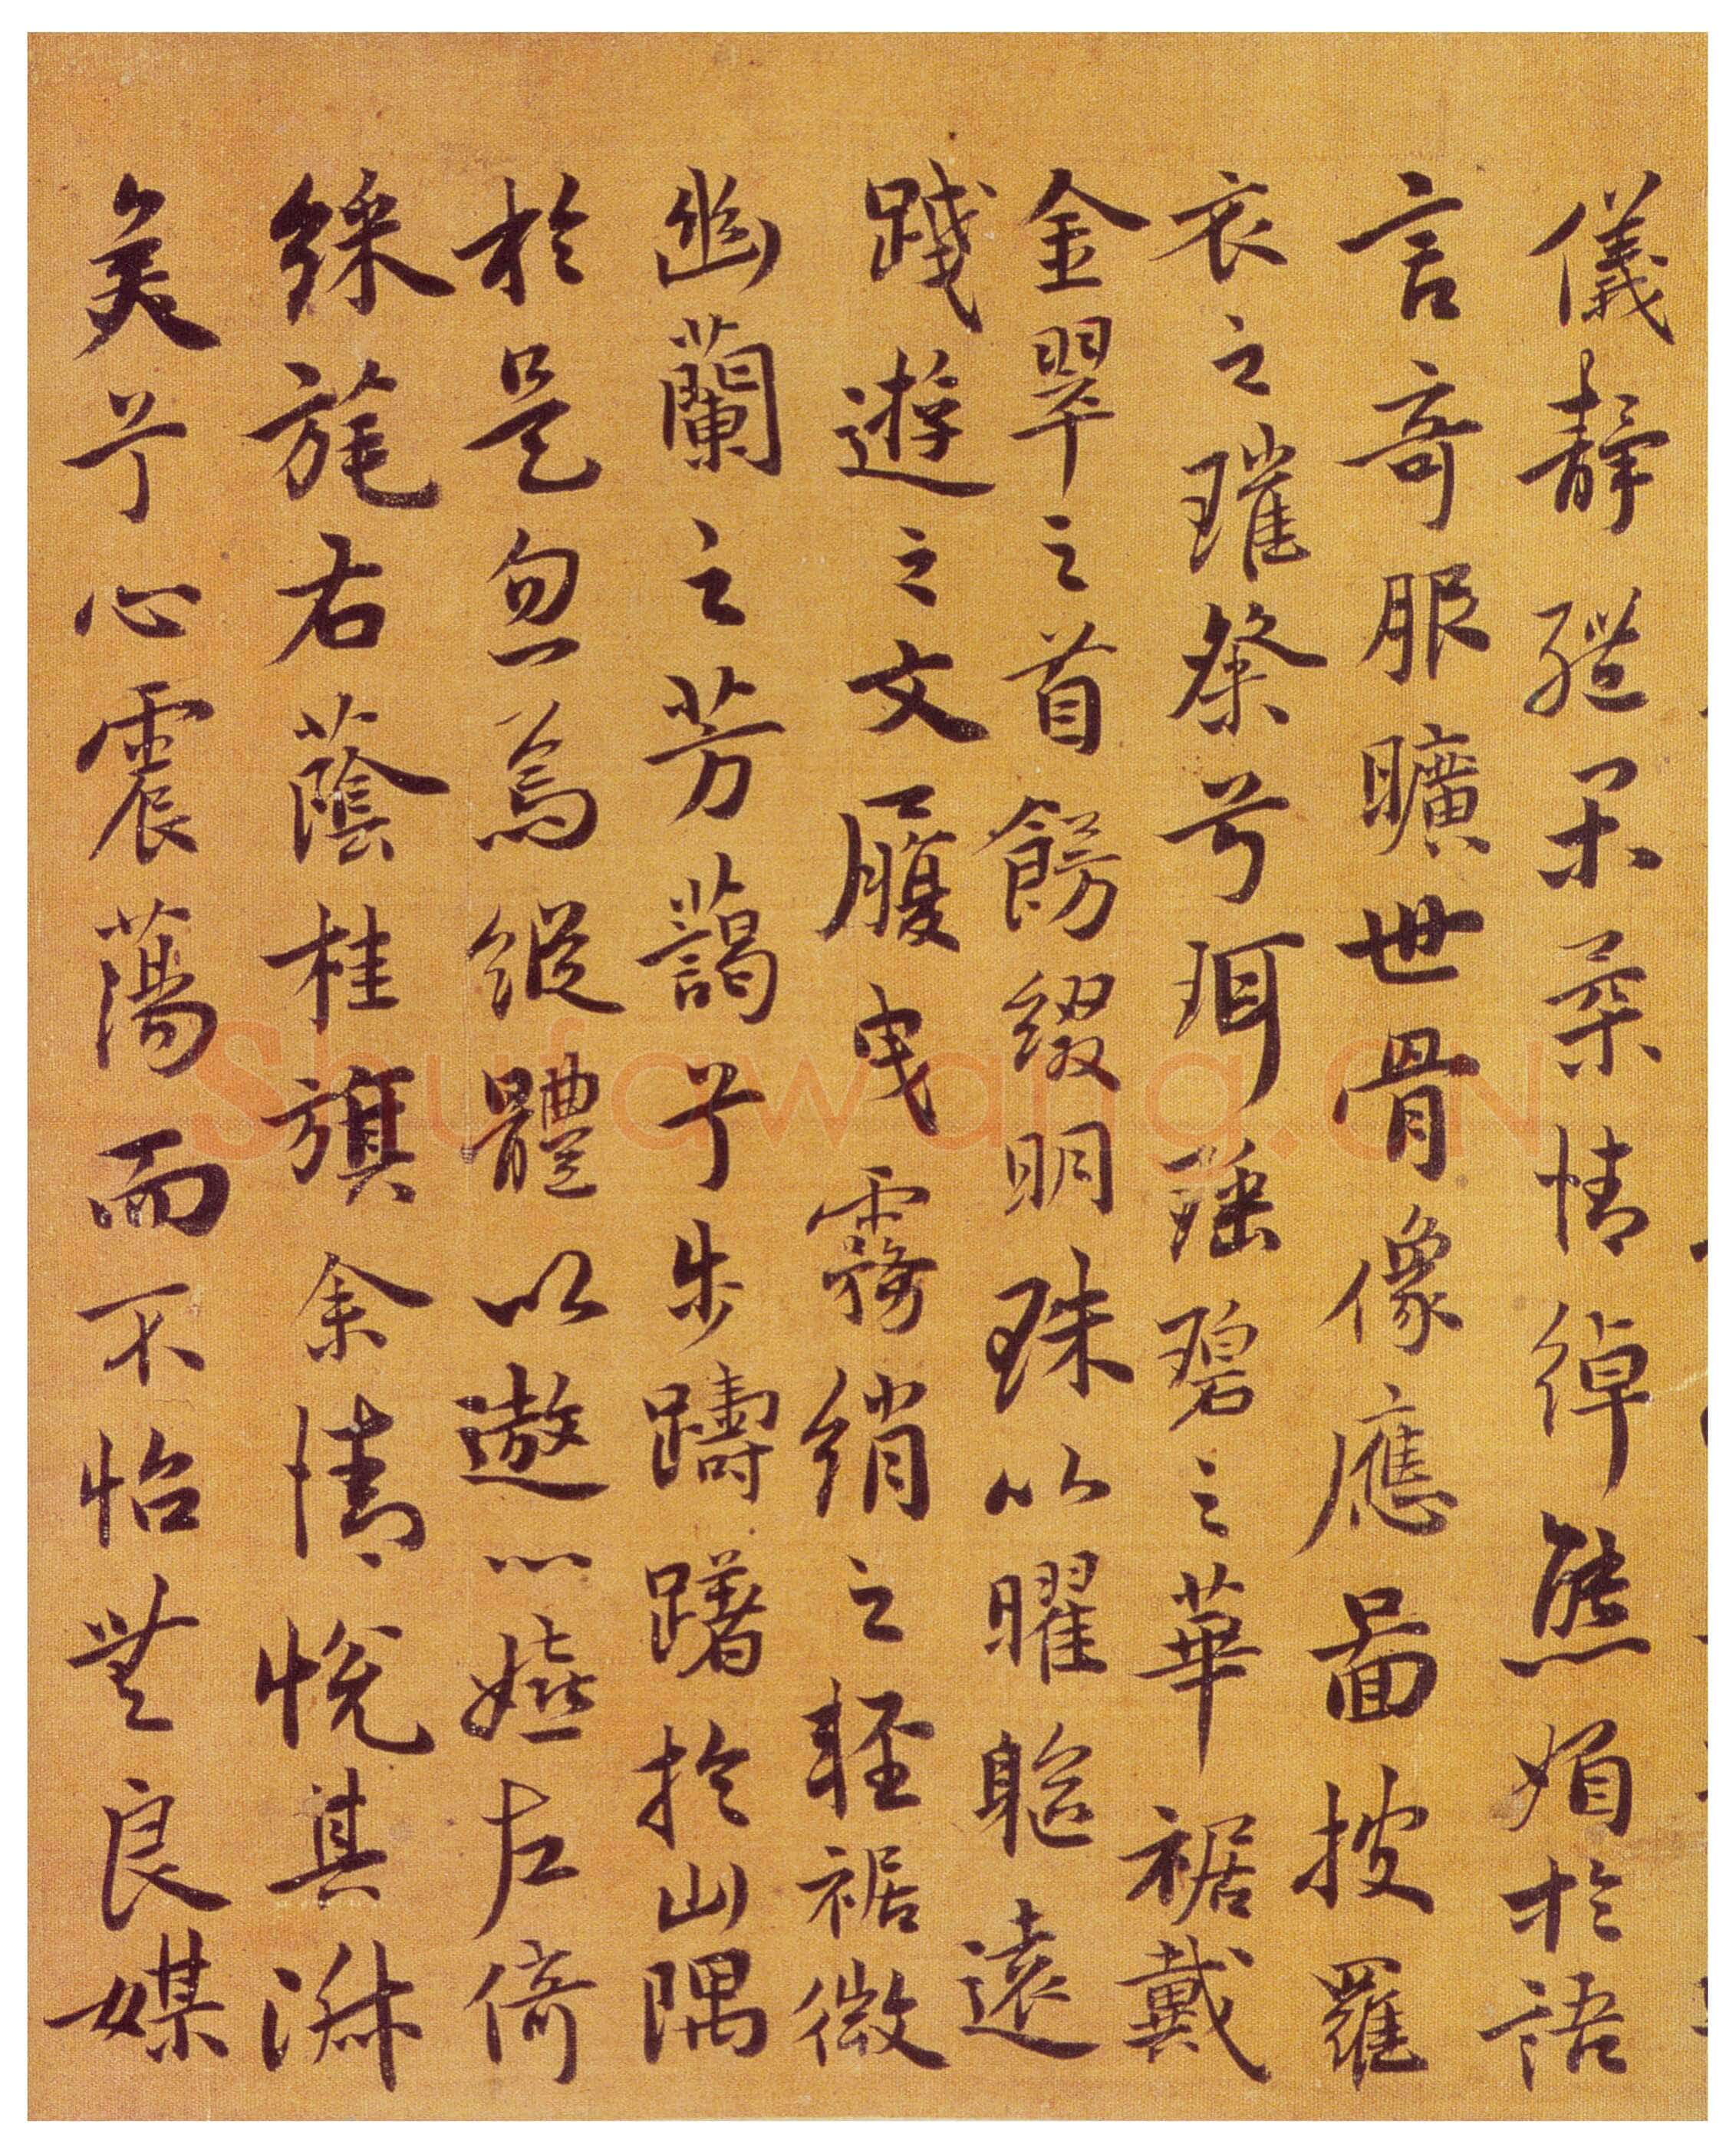 儀靜體閑柔情綽態媚於語
言奇服曠世骨像應圖披羅
衣之璀粲兮珥瑤碧之華裾戴
金翠之首飾綴明珠以曜軀遠
踐遊之文履曳霧綃之輕裾微
幽蘭之芳藹兮步躊躇於山隅
於是忽焉縱體以遨以嬉左倚
綵旄右蔭桂旗余情悅其淑
美兮心震蕩而不怡無良媒
Shufawang.CN